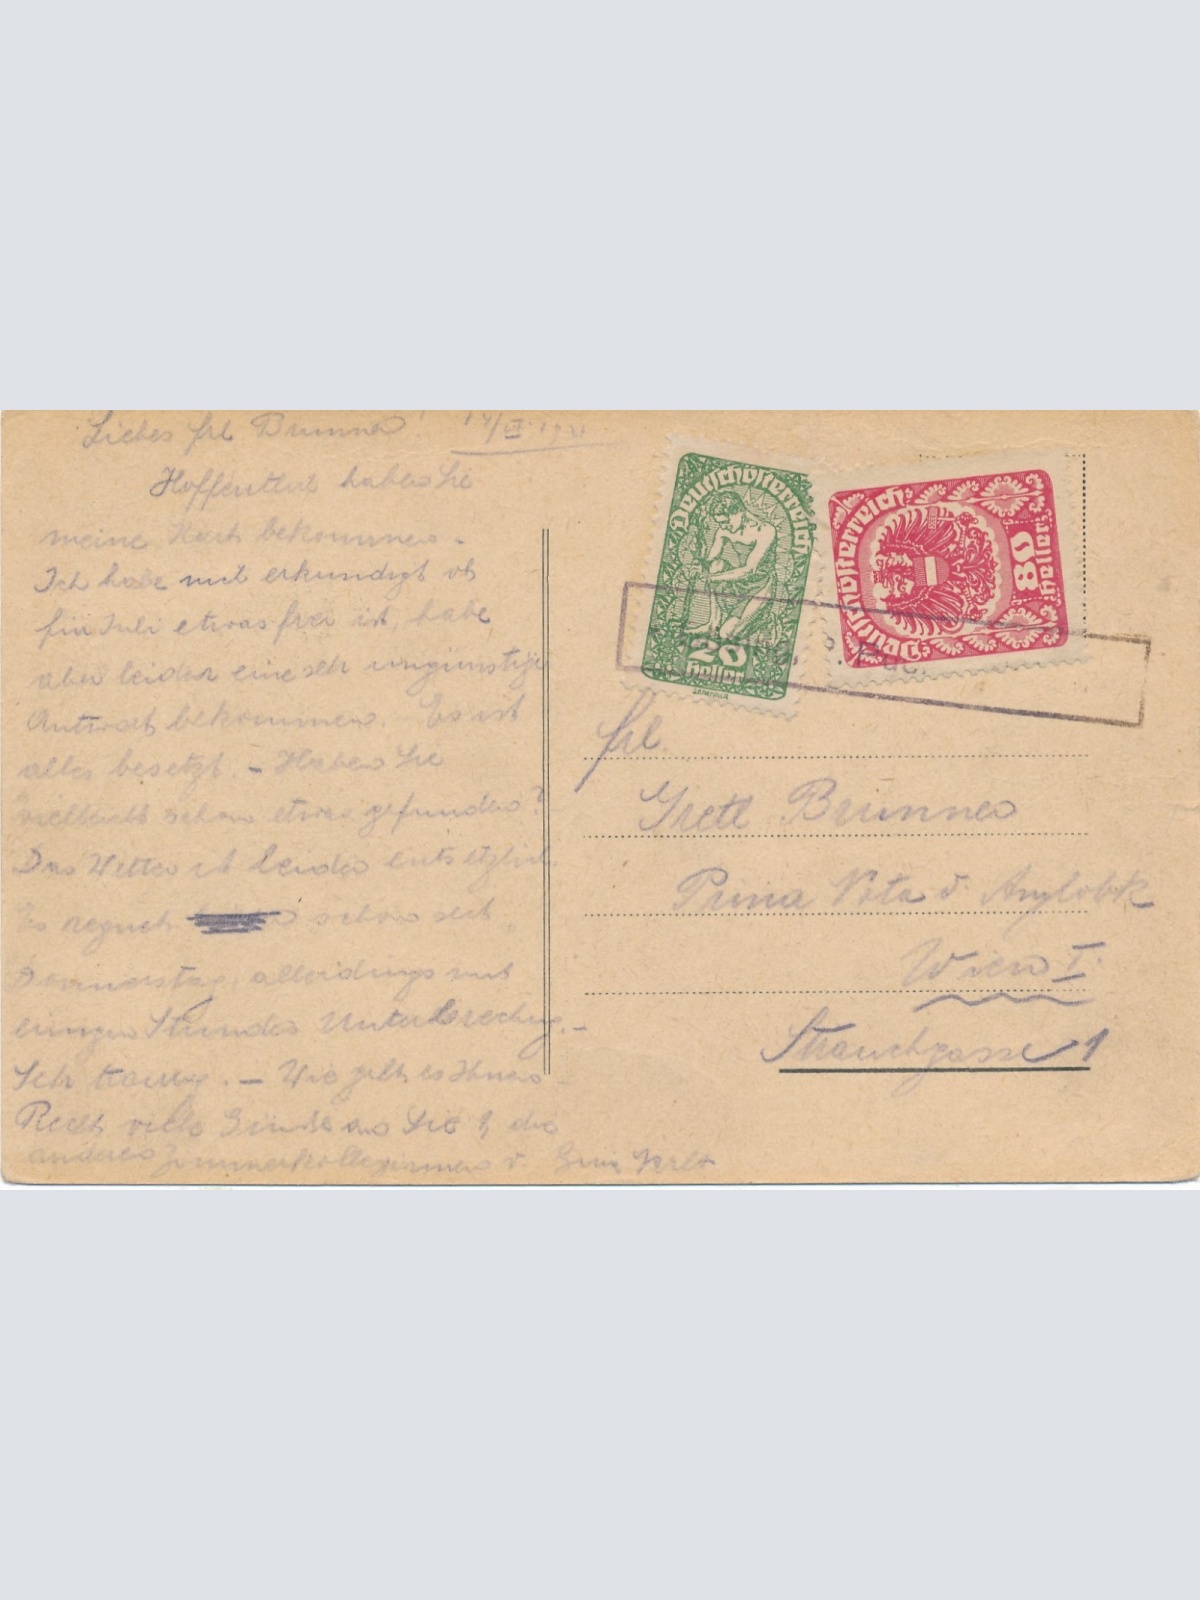 Liebes Frl Brunner!
Hoffentlich haben Sie
meine Kart bekommen -
Ich habe mit erkundigt ob
für Juli etwas frei ist, habe
aber leider eine sehr ungünstige
Antwort bekommen. Es ist
alles besetzt. - Haben Sie
vielleicht schon etwas gefunden?
Das Wetter ist leider entsetzlich.
Es regnet schon seit
Donnerstag, allerdings mit
einigen Stunden Unterbrechung. -
Sehr traurig. - Wie geht es Ihnen
Recht viele Grüße an Sie & die
anderen v.
Deutschösterreich
20
Heller
Deutschösterreich
80
Heller
Frl.
Gretl Brunner
Prima Nota d. Anglobk
Wien I.
Strauchgasse 1